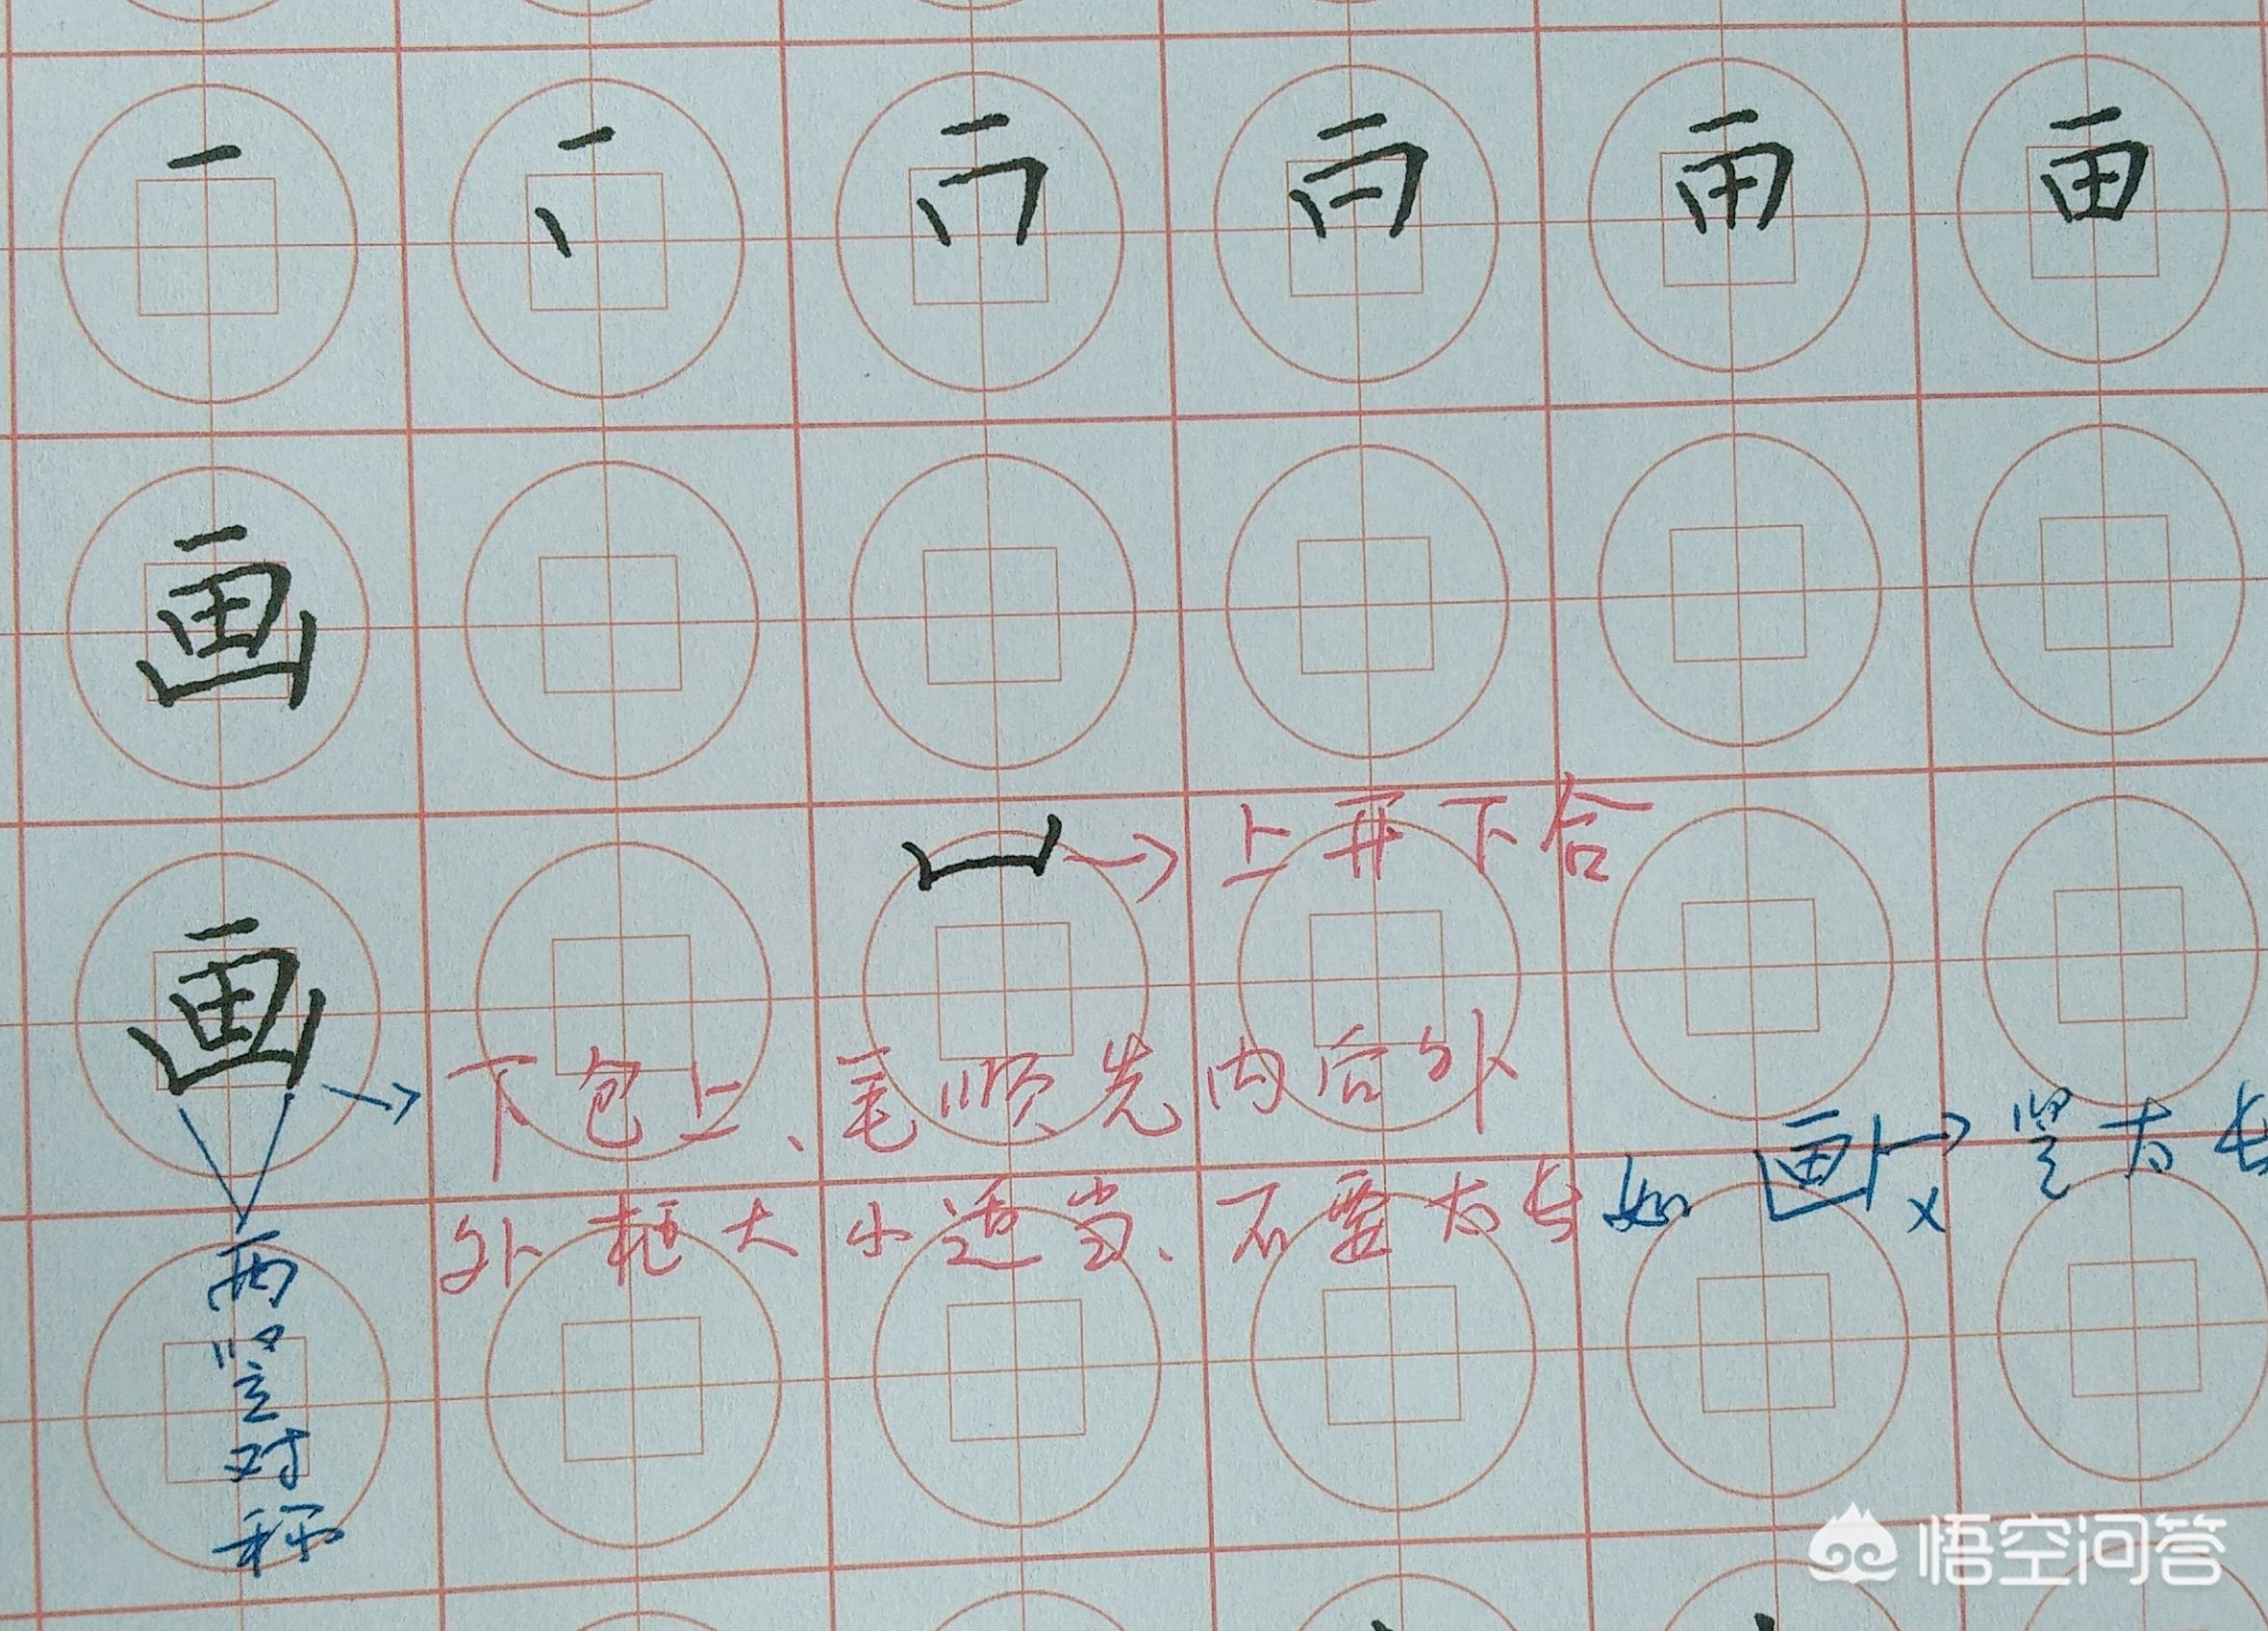 一 丨 画
画
上开下合
画
下包上、笔顺先内后外
外框大小适当、不要太长 如 画 x → 竖太长
两竖对称
悟空问答